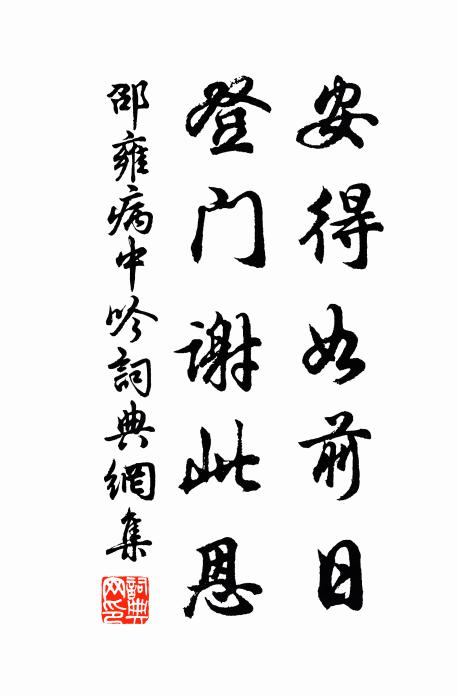 安得如前日
登门谢此恩
邵雍病中吟詞典網集
詞典网印